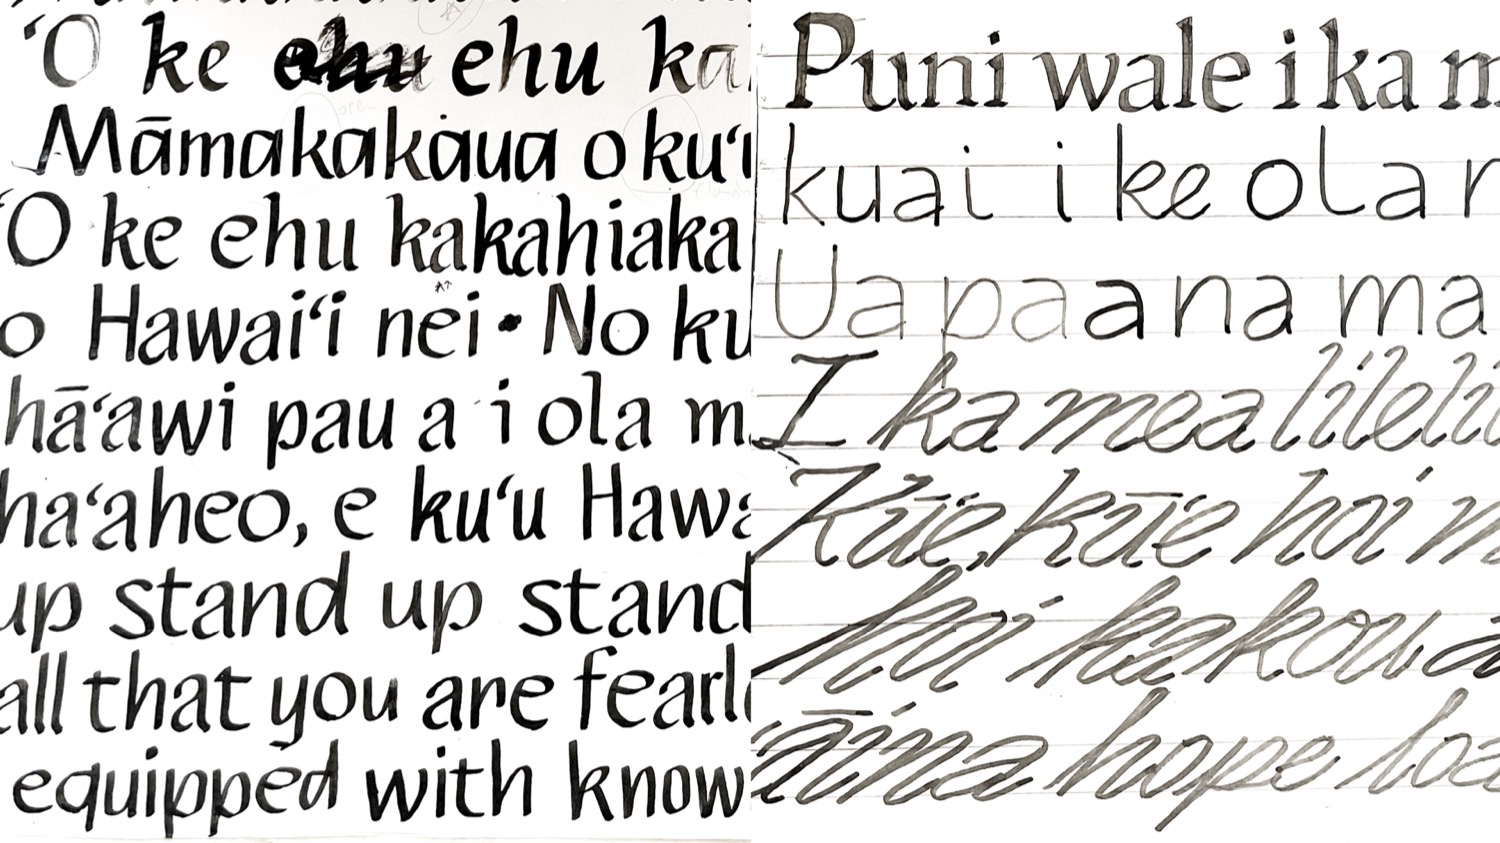 ʻO ke ehu ehu ka
Māmakakaua o kuʻu
ʻO ke ehu kakahiaka
o Hawaiʻi nei • No ku
hāʻawi pau a i ola m
haʻaheo, e kuʻu Hawa
up stand up stand
all that you are fearl
equipped with know
Puni wale i ka m
kuai i ke ola n
Ua paa ana ma
I ka mea lileli
Kūe, kūe hoi m
hoi kakou a
āina hope loa